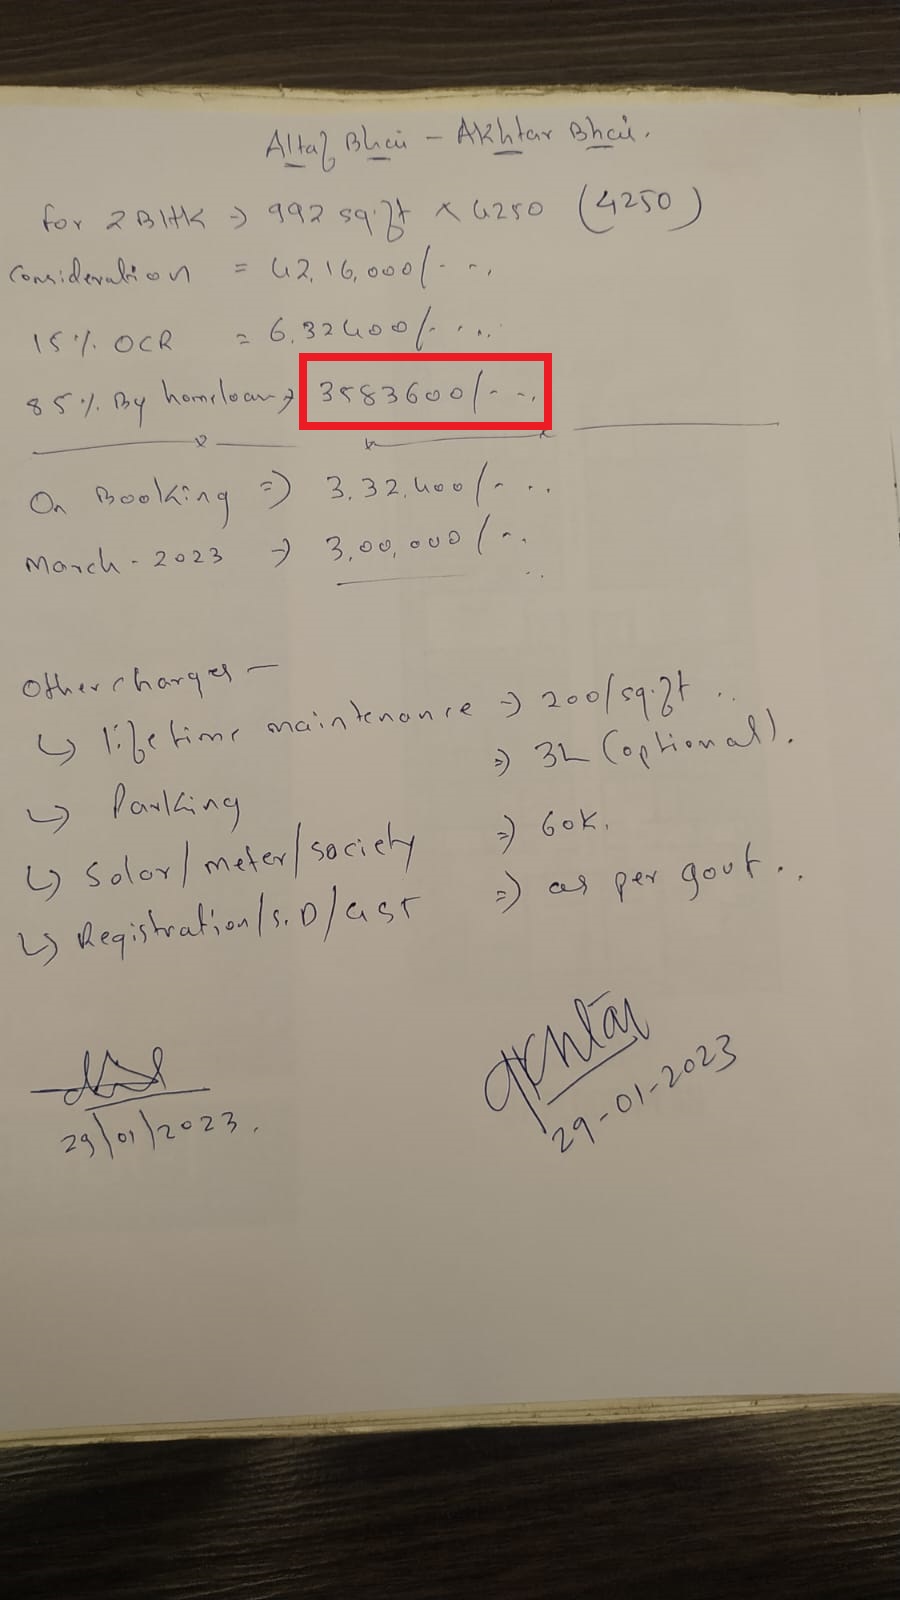 Altaf Bhai - Akhtar Bhai.
for 2BHK → 992 sq.ft × 4250 (4250)
Consideration = 42,16,000/-...
15% OCR = 6,32400/-...
85% By homeloan → 3583600/-...
On Booking ⇒ 3,32,400/-...
March-2023 → 3,00,000/-..
Other charges -
↳ lifetime maintenance ⇒ 200/sq.ft ..
↳ Parking ⇒ 3L (optional).
↳ Solar/meter/society ⇒ 60K.
↳ Registration/S.D/GST ⇒ as per govt...
Akhtar
29/01/2023.
29-01-2023